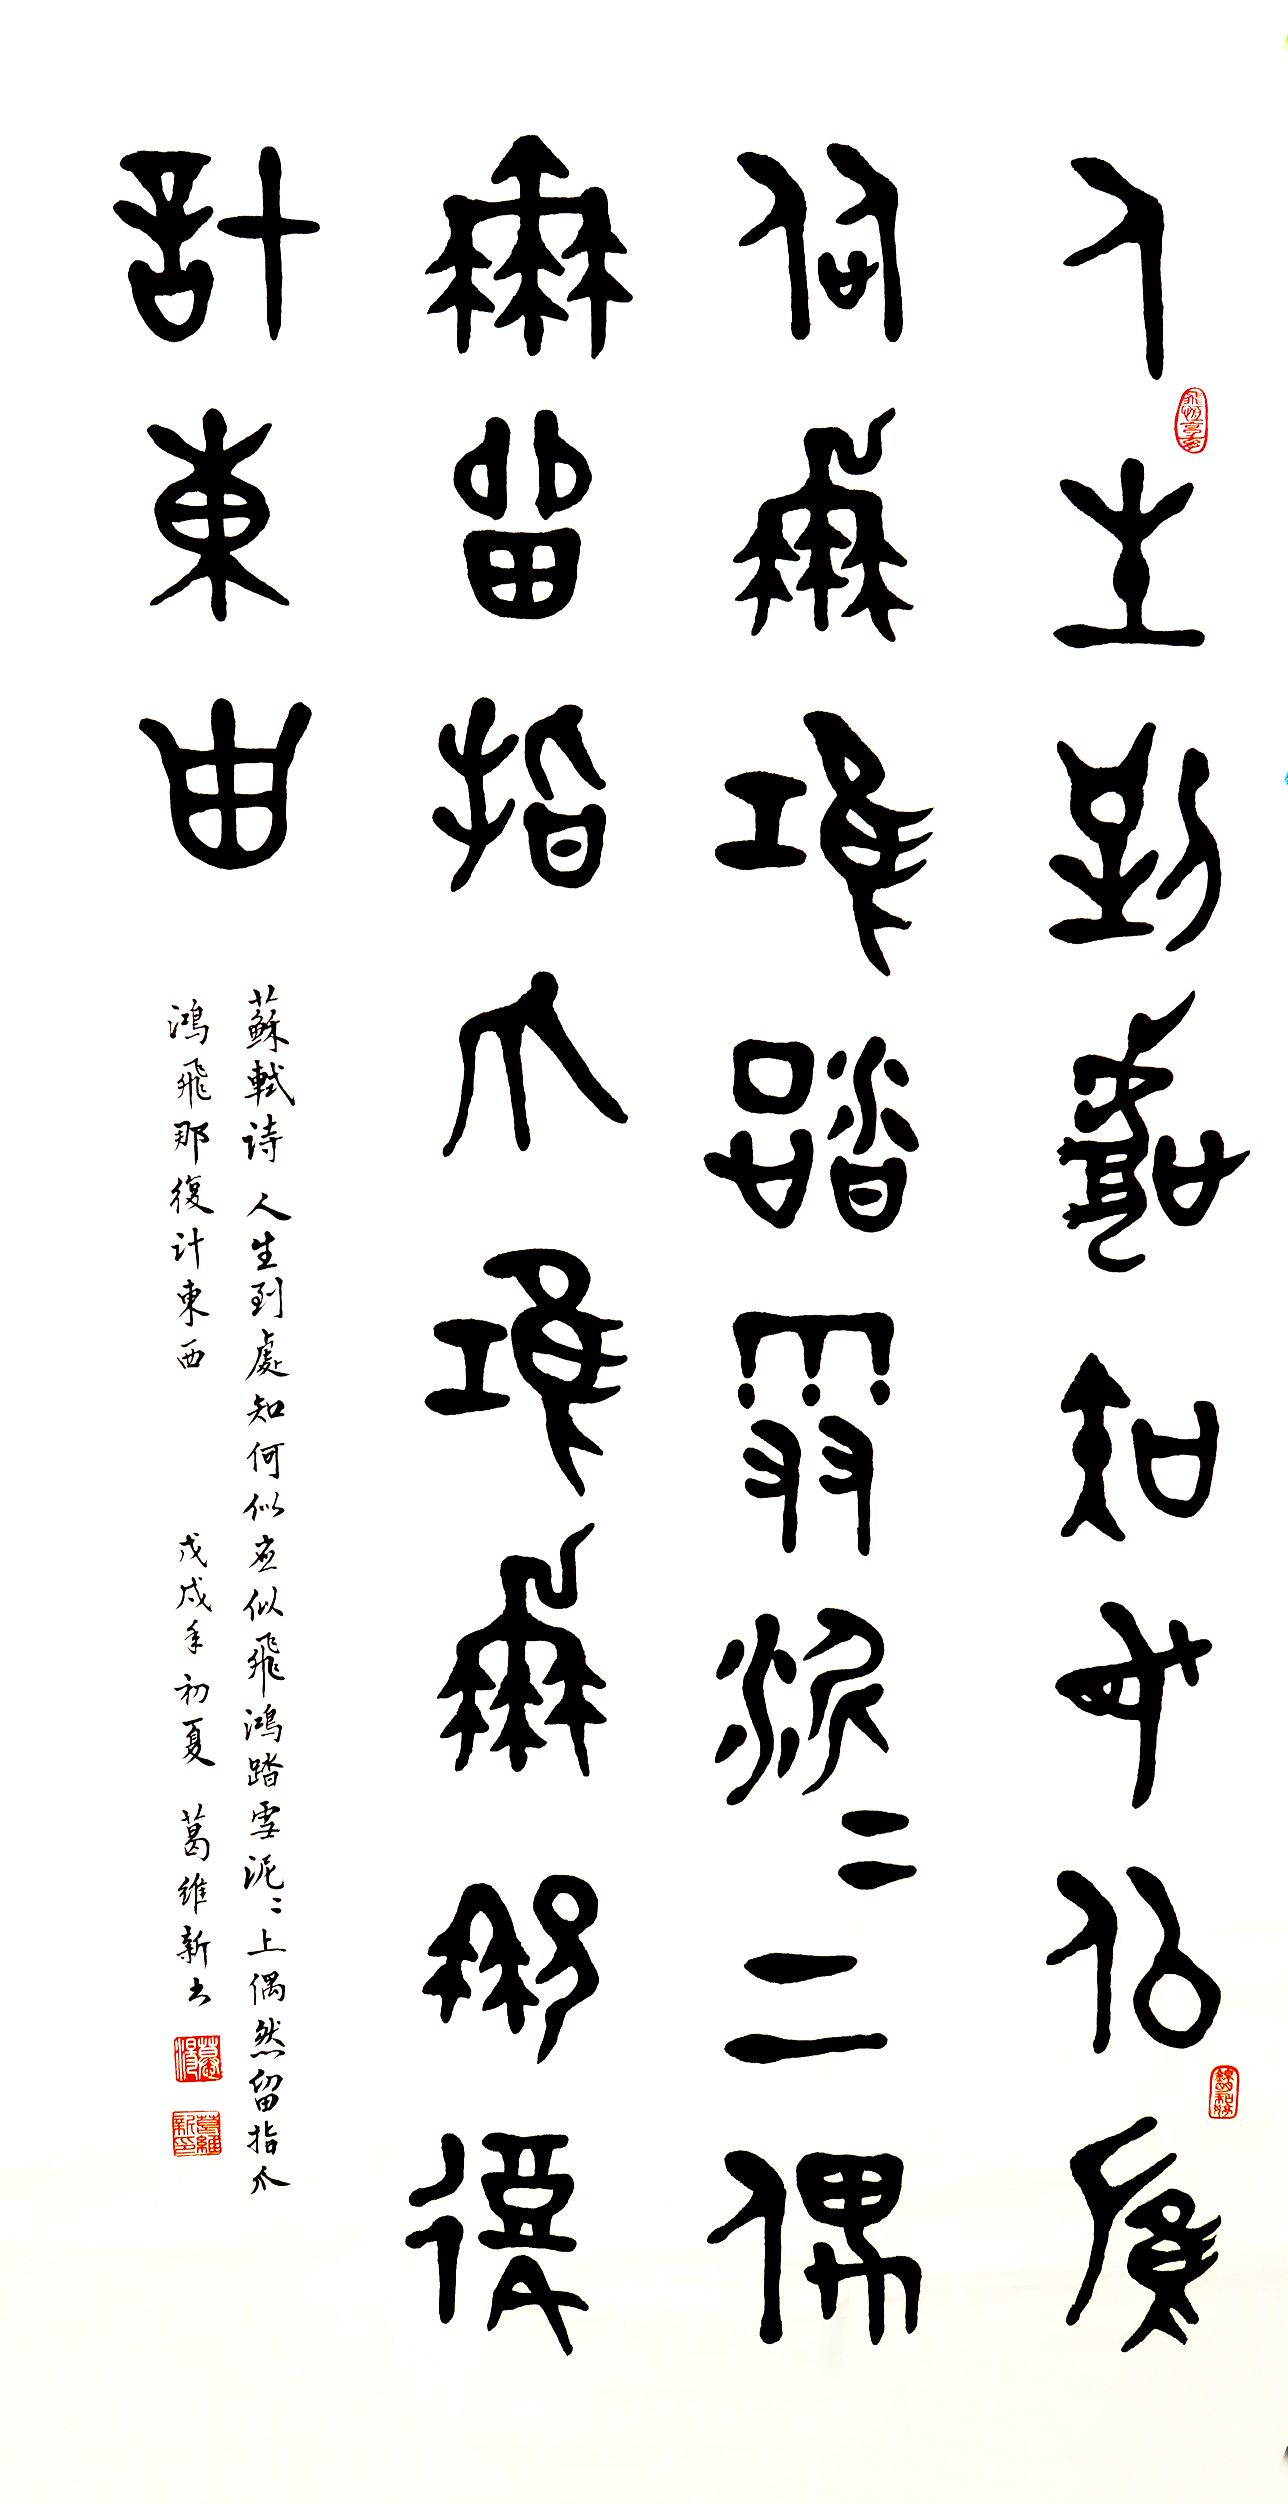 人生到處知何似應
似飛鴻踏雪泥＝上偶
然留指爪鴻飛那復
計東西
蘇軾诗 人生到處知何似應似飛鴻踏雪泥＝上偶然留指爪
鴻飛那復计東西 戊戌年初夏 葛維新书